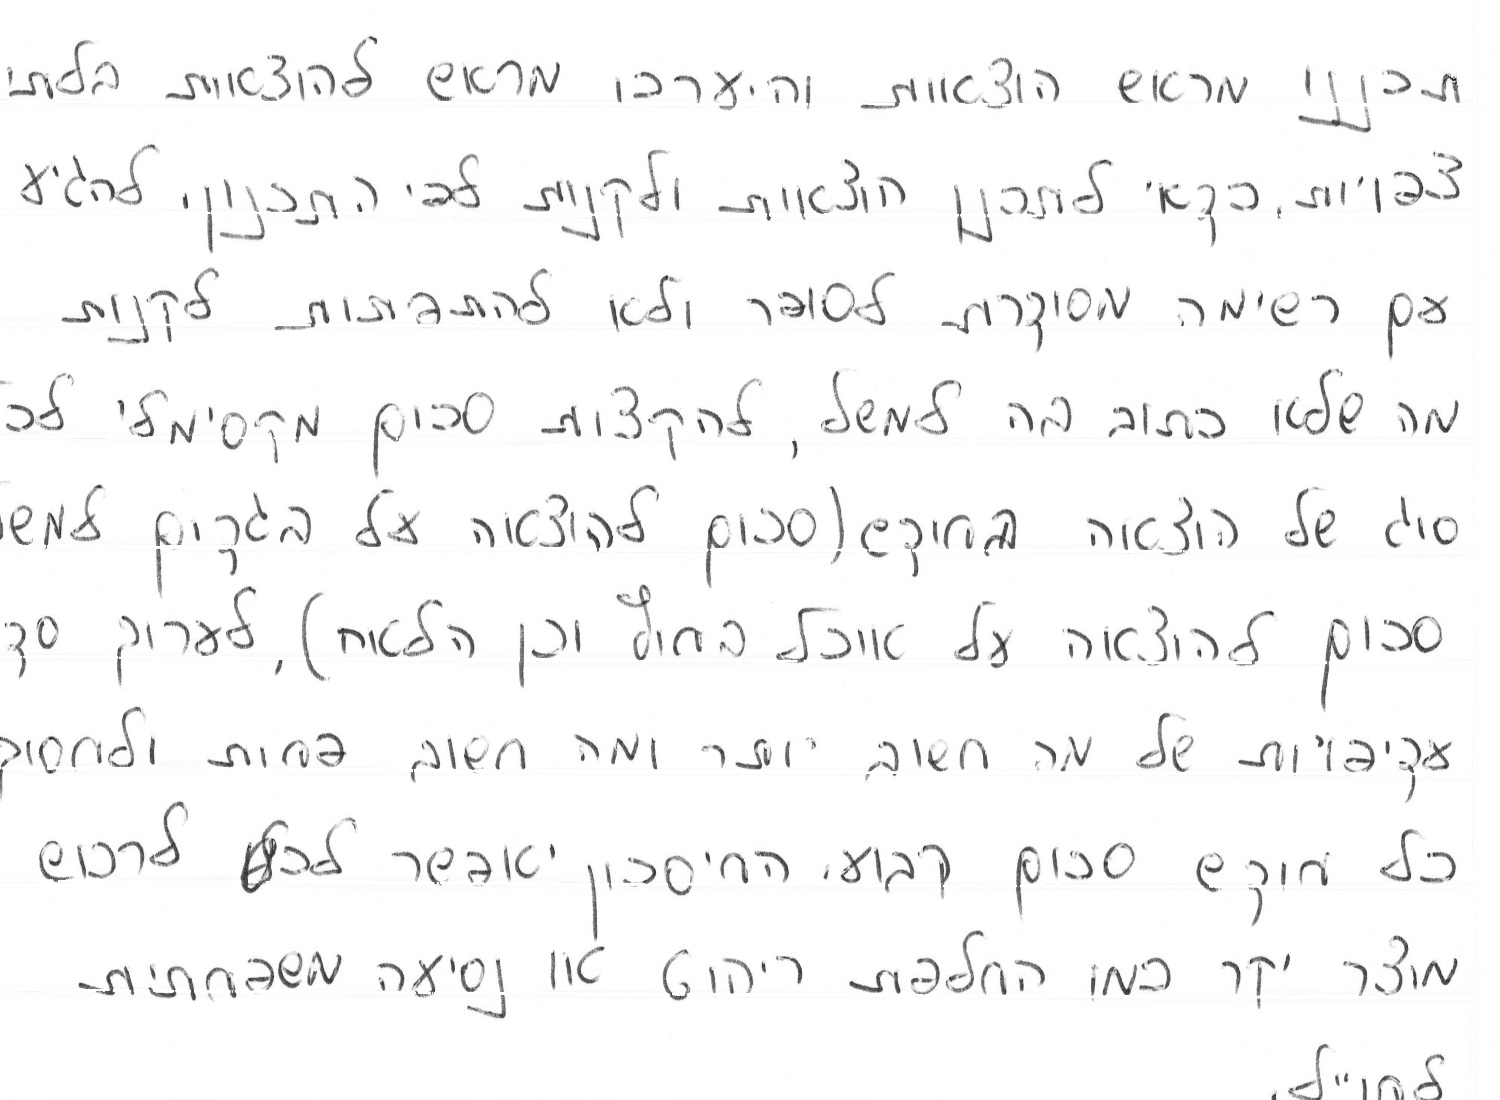 תכננו מראש הוצאות והיערכו מראש להוצאות בלתי
צפויות. כדאי לתכנן הוצאות ולקנות לפי התכנון, להגיע
עם רשימה מסודרת לסופר ולא להתפתות לקנות
מה שלא כתוב בה למשל, להקצות סכום מקסימלי לכל
סוג של הוצאה בחודש (סכום להוצאה על בגדים למשל
סכום להוצאה על אוכל בחוץ וכן הלאה), לערוך סדר
עדיפויות של מה חשוב יותר ומה חשוב פחות ולחסוך
כל חודש סכום קבוע. החיסכון יאפשר לכם לרכוש
מוצר יקר כמו החלפת ריהוט או נסיעה משפחתית
לחו"ל.